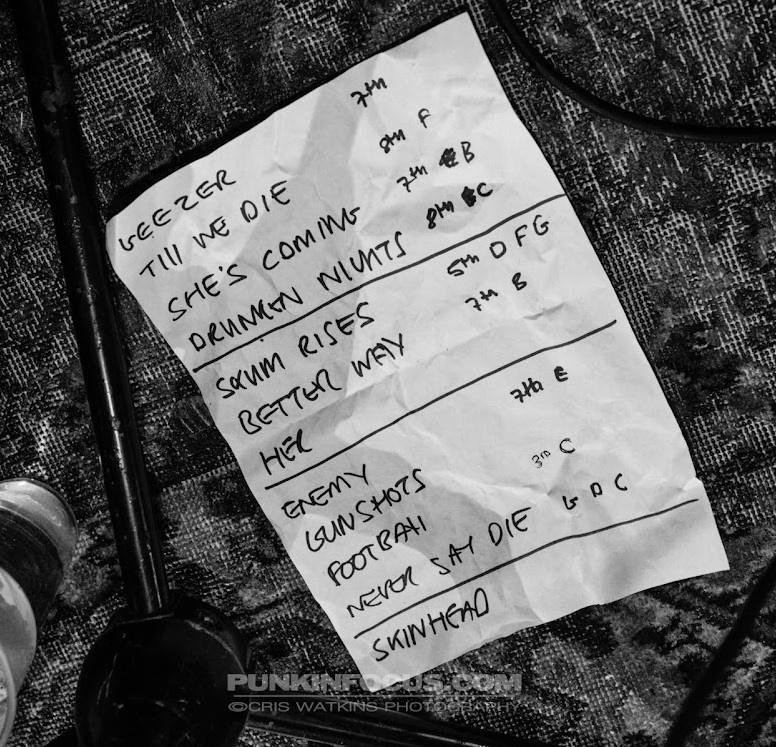 GEEZER 7TH
TILL WE DIE 8TH F
SHE'S COMING 7TH B
DRUNKEN NIGHTS 8TH C
SCUM RISES 5TH D F G
BETTER WAY 7TH B
HER
ENEMY 7TH E
GUNSHOTS
FOOTBALL 3RD C
NEVER SAY DIE G D C
SKINHEAD
PUNKINFOCUS.COM
©CRIS WATKINS PHOTOGRAPHY